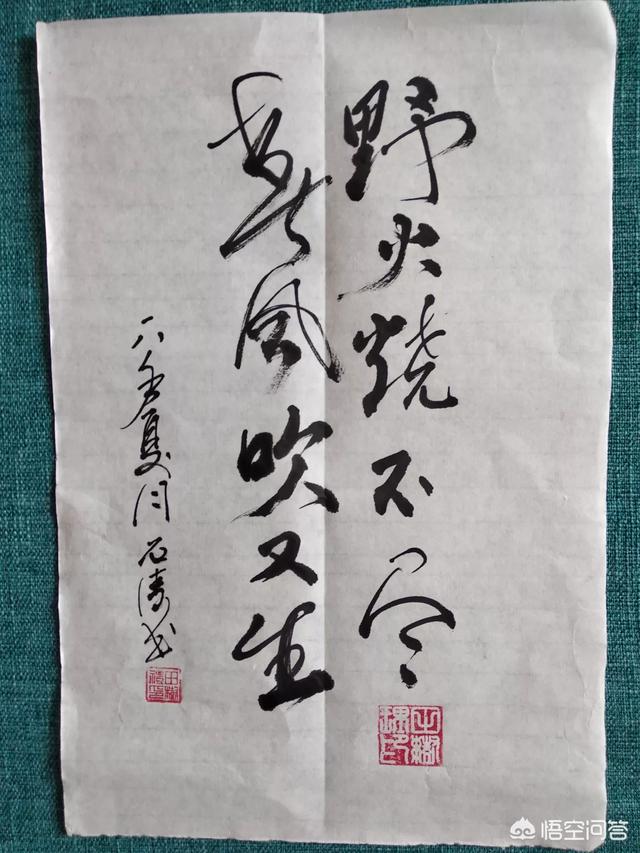 野火烧不尽
春风吹又生
一八年夏月石涛书
悟空问答